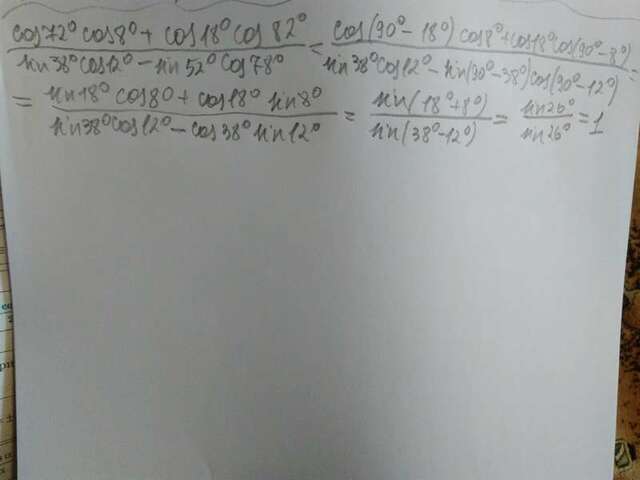 cos72° cos8° + cos18° cos 82° / sin38° cos12° − sin 52° cos78° = cos(90° − 18°) cos8° + cos18° cos(90° − 8°) / sin38° cos12° − sin(90° − 38°) cos(90° − 12°) =
= sin18° cos8° + cos18° sin8° / sin38° cos12° − cos38° sin12° = sin(18° + 8°) / sin(38° − 12°) = sin26° / sin26° = 1